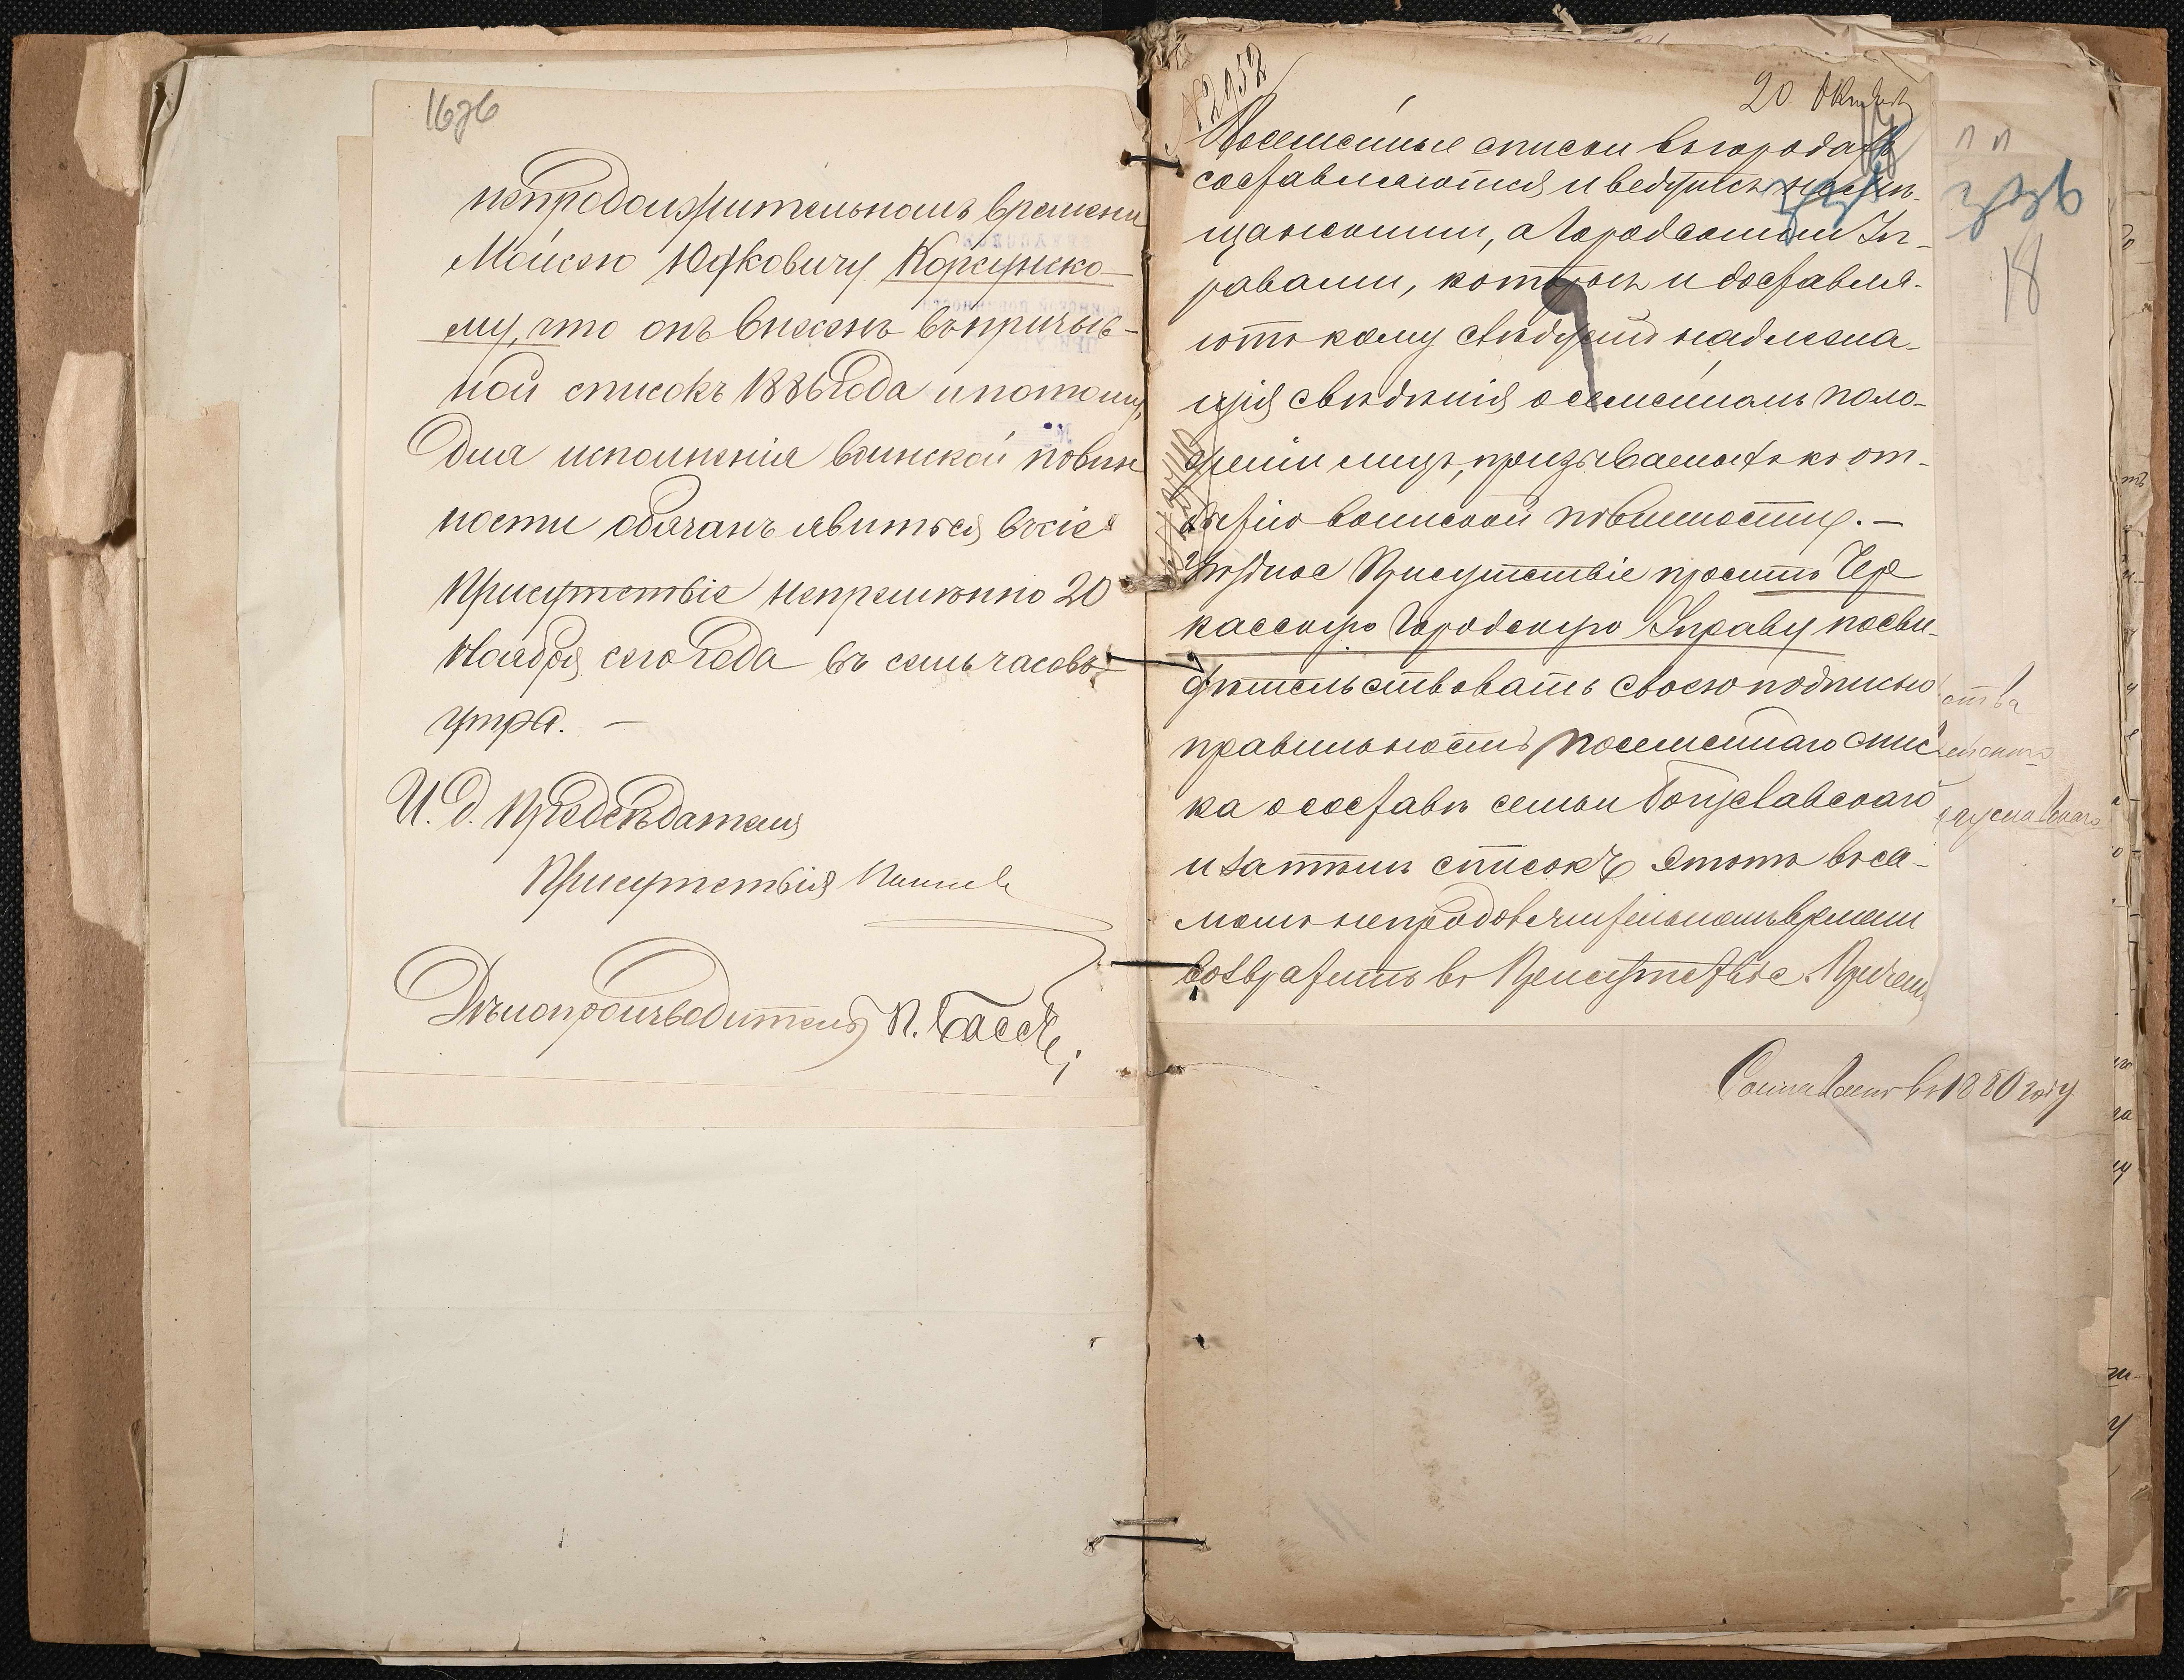 16об
непродолжительномъ времени
Мойсею Юдковичу Корсунско-
му, что онъ внесенъ въ призыв-
ной списокъ 1886 года и потому,
для исполненія воинской повин
ности обязанъ явиться въ сіе
Присутствіе непременно 20
Ноября сего года въ семь часовъ
утра. —
И. д. Предсѣдателя
Присутствія
Дѣлопроизводитель П. Бассъ
№ 2952
20 Октября
Посемейные списки въ городахъ
составляются и ведутся не мѣ-
щанскими, а Городскими Уп-
равами, которыя и доставля-
ютъ кому слѣдуетъ надлежа-
щія свѣдѣнія о семейномъ поло-
женіи лицъ, призываемыхъ къ от-
бытію воинской повинности. —
Уѣздное Присутствіе проситъ Чер
касскую Городскую Управу посви-
дѣтельствовать своею подписью
правильность посемейнаго спис
ка о составѣ семьи Богуславскаго
и затѣмъ списокъ этотъ въ са-
момъ непродолжительномъ времени
возвратить въ Присутствіе. Причемъ
18
ства
Составленъ въ 1880 году